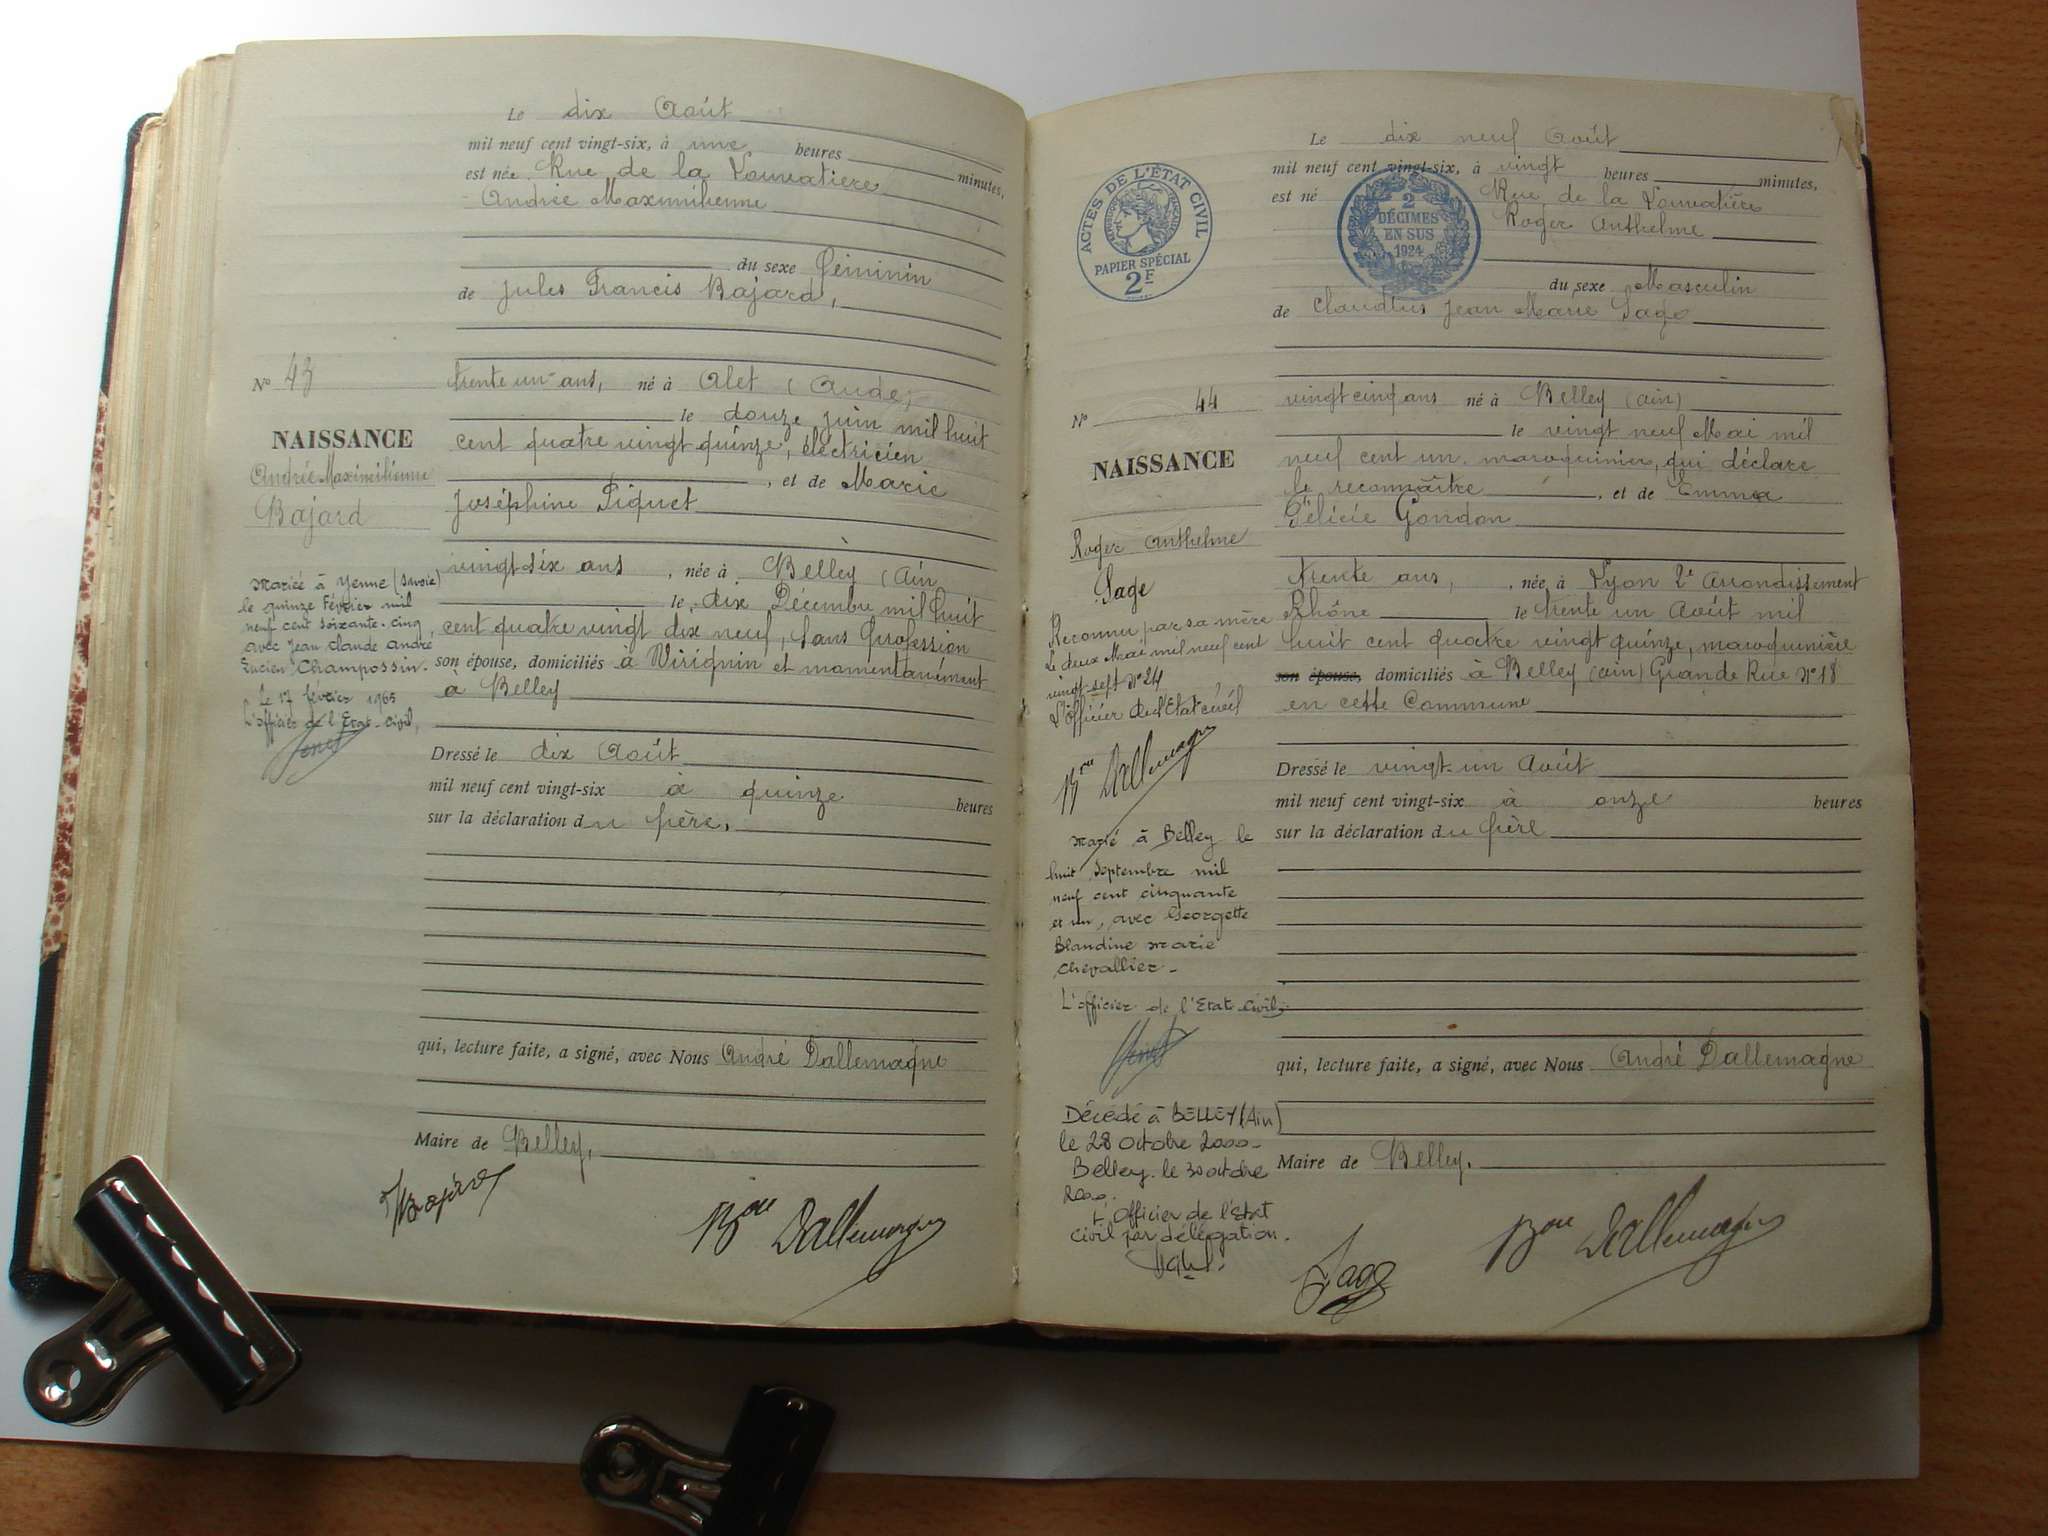 Le dix Août
mil neuf cent vingt-six, à une heures minutes,
est née Rue de la Louvatière
Andrée Maximilienne
du sexe féminin
de Jules Francis Bajard,
No 43
trente un ans, né à Alet (Aude)
le douze juin mil huit
NAISSANCE
cent quatre vingt quinze, électricien
Andrée Maximilienne
, et de Marie
Bajard
Joséphine Piquet
vingt six ans , née à Belley (Ain
le dix Décembre mil huit
cent quatre vingt dix neuf, sans profession
son épouse, domiciliés à Virignin et momentanément
à Belley
Mariée à Yenne (Savoie)
le quinze Février mil
neuf cent soixante-cinq
avec Jean Claude André
Lucien Champossin.
Le 17 février 1965
L'officier de l'Etat-Civil,
Dressé le dix Août
mil neuf cent vingt-six à quinze heures
sur la déclaration du père,
qui, lecture faite, a signé, avec Nous André Dallemagne
Maire de Belley,
Bajard
Bon Dallemagne
ACTES DE L'ÉTAT CIVIL
PAPIER SPÉCIAL
2F
2
DÉCIMES
EN SUS
1924
Le dix neuf Août
mil neuf cent vingt-six, à vingt heures minutes,
est né Rue de la Louvatière
Roger Anthelme
du sexe Masculin
de Claudius Jean Marie Sage
No 44
vingt cinq ans né à Belley (Ain)
le vingt neuf Mai mil
NAISSANCE
neuf cent un maroquinier, qui déclare
le reconnaître , et de Emma
Félicie Gondon
Roger Anthelme
Sage
trente ans, , née à Lyon 2e Arrondissement
Rhône le trente un Août mil
huit cent quatre vingt quinze, maroquinière
son épouse, domiciliés à Belley (Ain) Grande Rue No 18
en cette Commune
Reconnu par sa mère
le deux Mai mil neuf cent
vingt-sept No 24
L'Officier de l'Etat civil
Bon Dallemagne
Dressé le vingt-un Août
mil neuf cent vingt-six à onze heures
sur la déclaration du père
Marié à Belley le
huit Septembre mil
neuf cent cinquante
et un, avec Georgette
Blandine Marie
Chevallier.
L'officier de l'Etat-Civil,
qui, lecture faite, a signé, avec Nous André Dallemagne
Maire de Belley,
Décédé à BELLEY (Ain)
le 28 octobre 2000.
Belley. le 30 octobre
2000.
L'Officier de l'Etat
Civil par délégation.
Sage
Bon Dallemagne